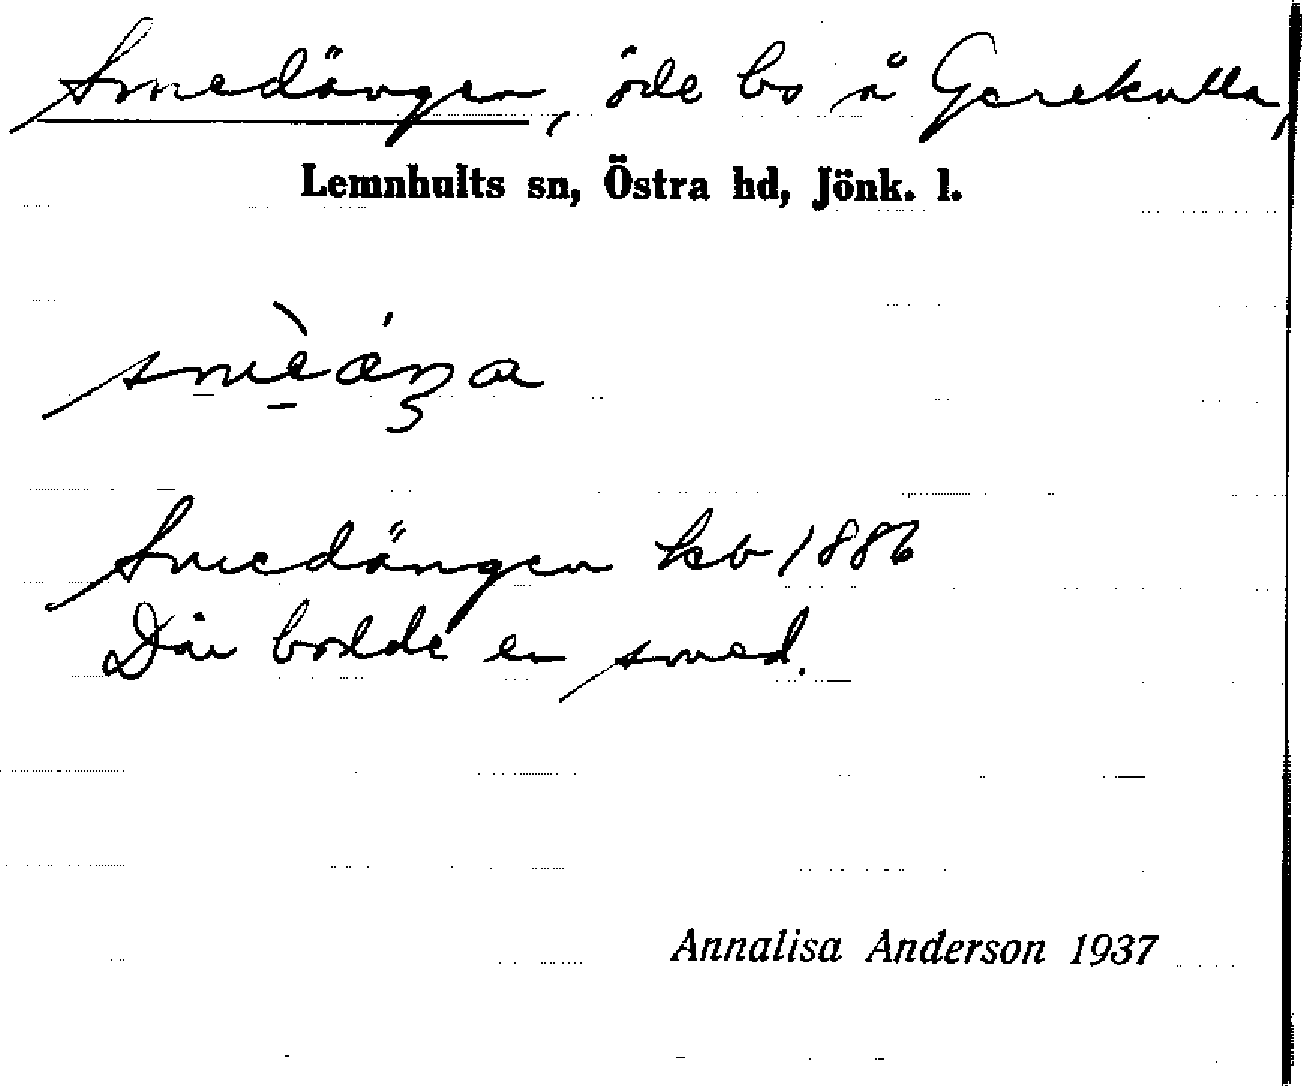 Smedängen, öde bs å Garekulla,
Lemnhults sn, Östra hd, Jönk. l.
Smedängen hsb 1886
Där bodde en smed.
Annalisa Anderson 1937